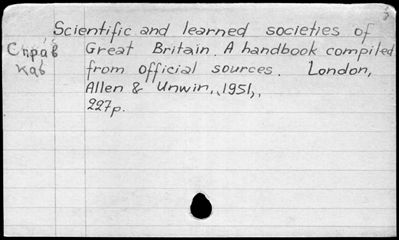 Scientific and learned societies of
Справ Great Britain. A handbook compiled
каб from official sources. London,
Allen & Unwin, 1951,.
227p.